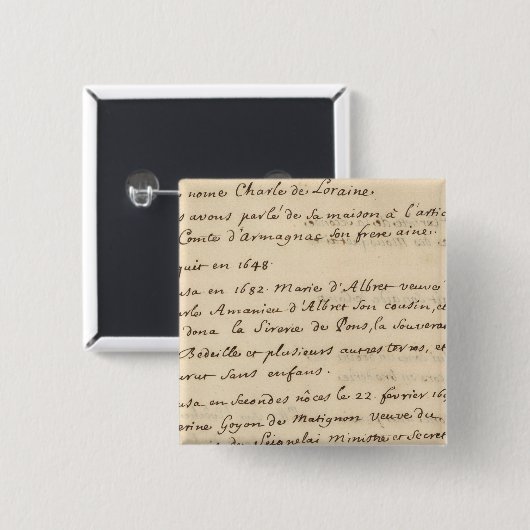 nomé Charle de Loraine.
s avons parlé de sa maison à l'artic
Comte d'Armagnac son frere ainé.
quit en 1648.
usa en 1682. Marie d'Albret veuve
arle Amanieu d'Albret son cousin, et
dona la Sirerie de Pons, la souvera
Bedeille et plusieurs autres terres, et
urut sans enfans.
usa en secondes nôces le 22. février 16
erine Goyon de Matignon veuve du
Seignelai Ministre et Secret